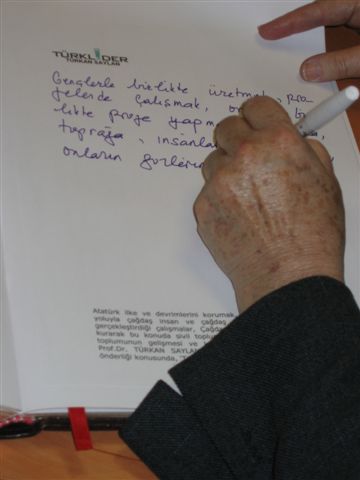 TÜRKLİDER
TÜRKAN SAYLAN
Gençlerle birlikte üretmek, pro-
jelerde çalışmak,
likte proje
toprağa, insanla
onların
Atatürk ilke ve devrimlerini korumak
yoluyla çağdaş insan ve çağdaş
gerçekleştirdiği çalışmalar, Çağda
kurarak bu konuda sivil toplu
toplumunun gelişmesi ve
Prof.Dr. TÜRKAN SAYLA
önderliği konusunda,